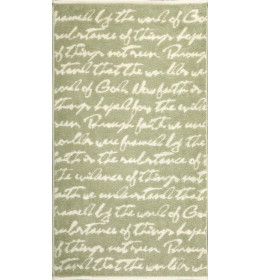 framed by the word of God
substance of things hoped
of things not seen. Through
stand that the worlds we
word of God. Now faith is
things hoped for, the evid
seen. Through faith we und
worlds were framed by th
faith is the substance of
the evidence of things not
faith we understand that
framed by the word of Go
substance of things hoped
of things not seen. Through